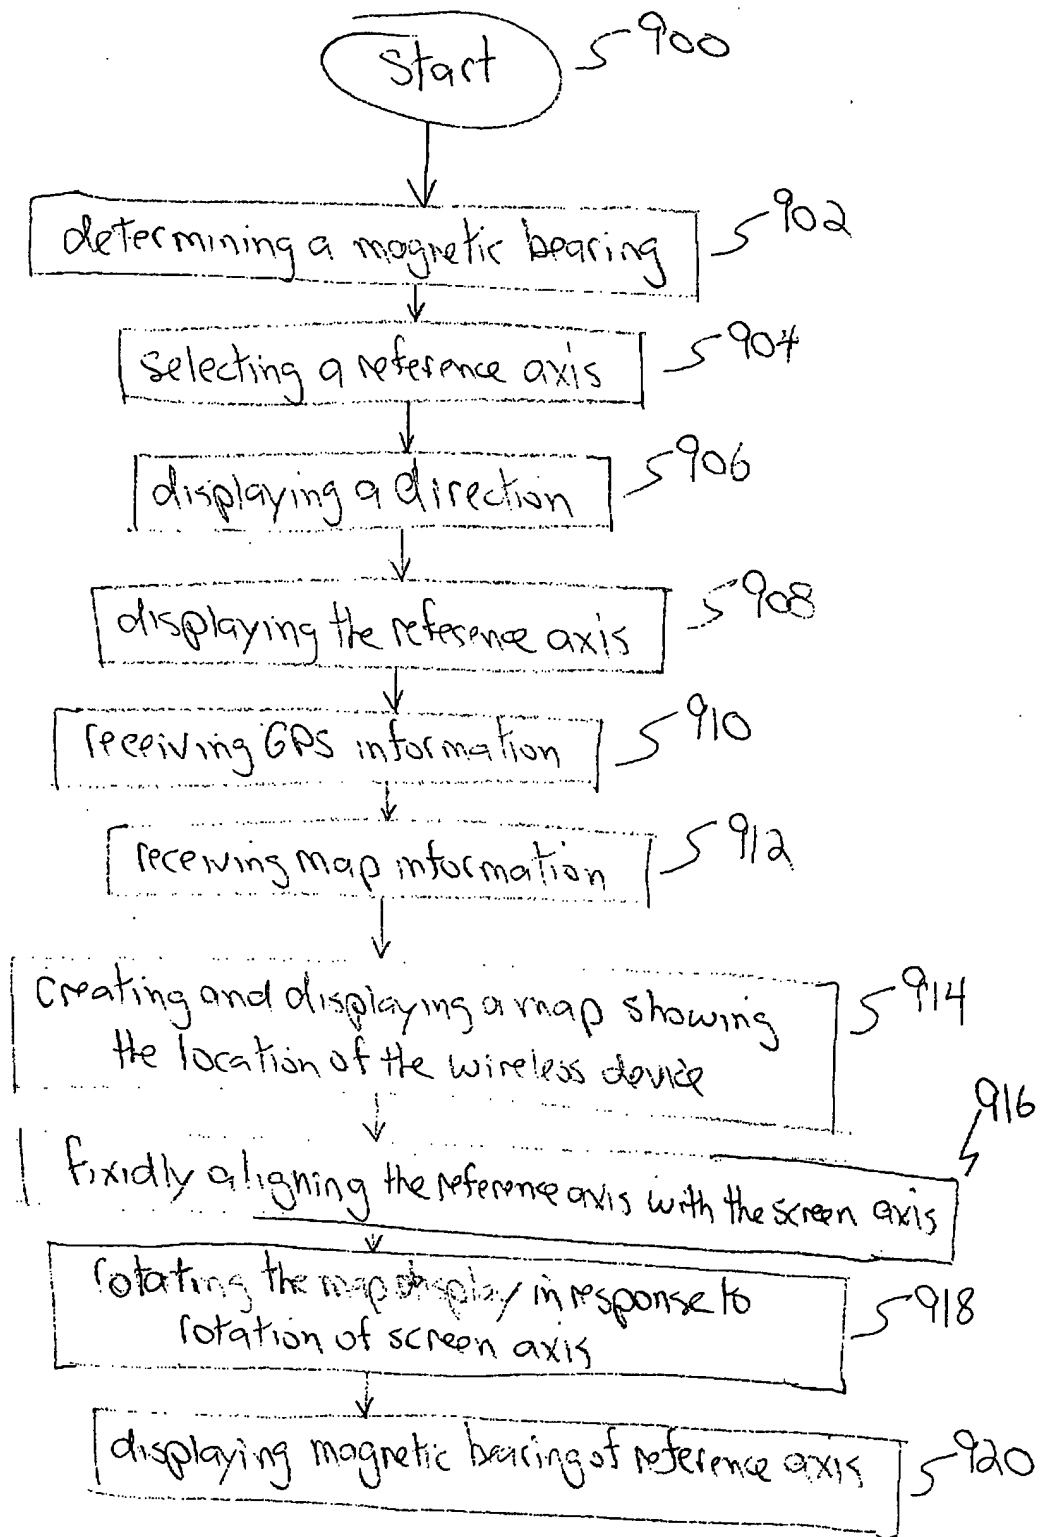 Start 900
determining a magnetic bearing 902
selecting a reference axis 904
displaying a direction 906
displaying the reference axis 908
receiving GPS information 910
receiving map information 912
creating and displaying a map showing 914
the location of the wireless device
916
fixidly aligning the reference axis with the screen axis
rotating the map display in response to 918
rotation of screen axis
displaying magnetic bearing of reference axis 920